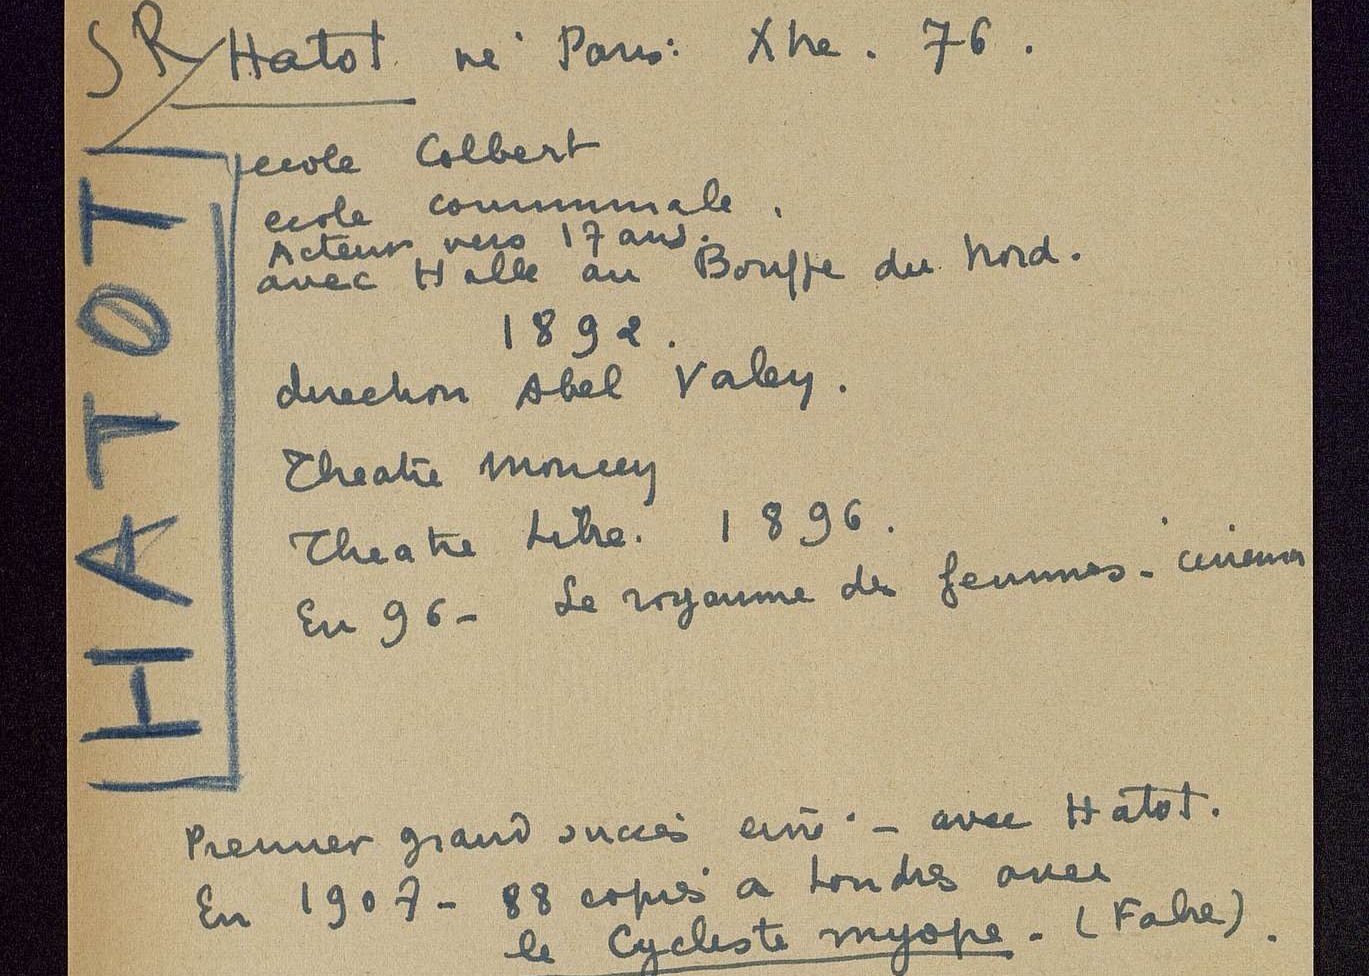 SR
Hatot né Paris. Xbre. 76.
HATOT
ecole Colbert
ecole communale.
Acteur vers 17 ans.
avec Halle au Bouffe du Nord.
1892.
direction Abel Valey.
Theatre Moncey
Theatre Libre. 1896.
En 96 - Le royaume des femmes - cinema
Premier grand succes ciné - avec Hatot.
En 1907 - 88 copies a Londres avec
le Cycliste myope. (Fabre).